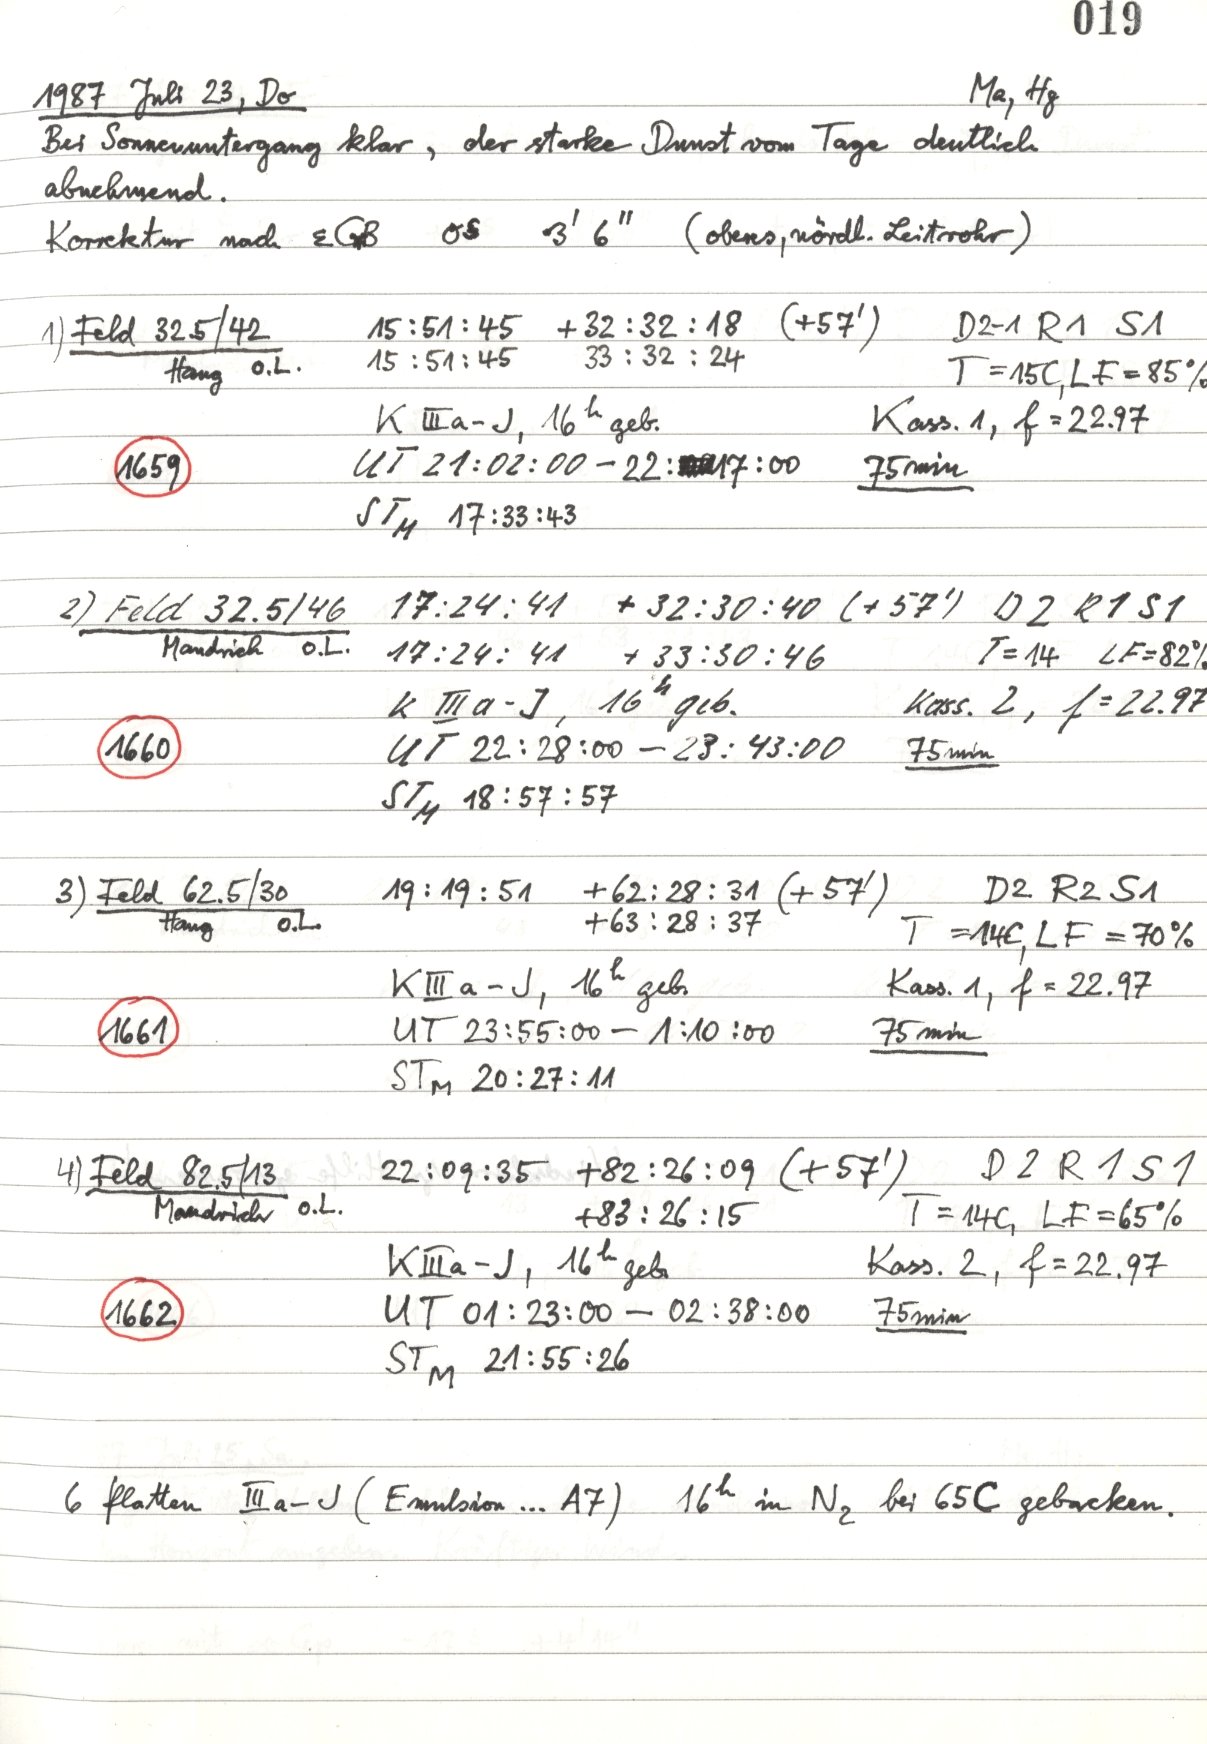 019
1987 Juli 23, Do Ma, Hg
Bei Sonnenuntergang klar, der starke Dunst vom Tage deutlich
abnehmend.
Korrektur nach 3' 6" (oberes, nördl. Leitrohr)
1) Feld 32.5/42 15:51:45 +32:32:18 (+57') D2-1 R1 S1
Haug O.L. 15:51:45 33:32:24 T=15C, LF=85%
K IIIa-J, 16h geb. Kass. 1, f=22.97
1659 UT 21:02:00 – 22:17:00 75min
STM 17:33:43
2) Feld 32.5/46 17:24:41 +32:30:40 (+57') D2 R1 S1
Mandrich O.L. 17:24:41 +33:30:46 T=14 LF=82%
K IIIa-J, 16h geb. Kass. 2, f=22.97
1660 UT 22:28:00 – 23:43:00 75min
STM 18:57:57
3) Feld 62.5/30 19:19:51 +62:28:31 (+57') D2 R2 S1
Haug O.L. +63:28:37 T=14C, LF=70%
KIIIa-J, 16h geb. Kass. 1, f=22.97
1661 UT 23:55:00 – 1:10:00 75min
STM 20:27:11
4) Feld 82.5/13 22:09:35 +82:26:09 (+57') D2 R1 S1
Mandrich O.L. +83:26:15 T=14C, LF=65%
KIIIa-J, 16h geb. Kass. 2, f=22.97
1662 UT 01:23:00 – 02:38:00 75min
STM 21:55:26
6 Platten IIIa-J (Emulsion ... A7) 16h in N2 bei 65C gebacken.